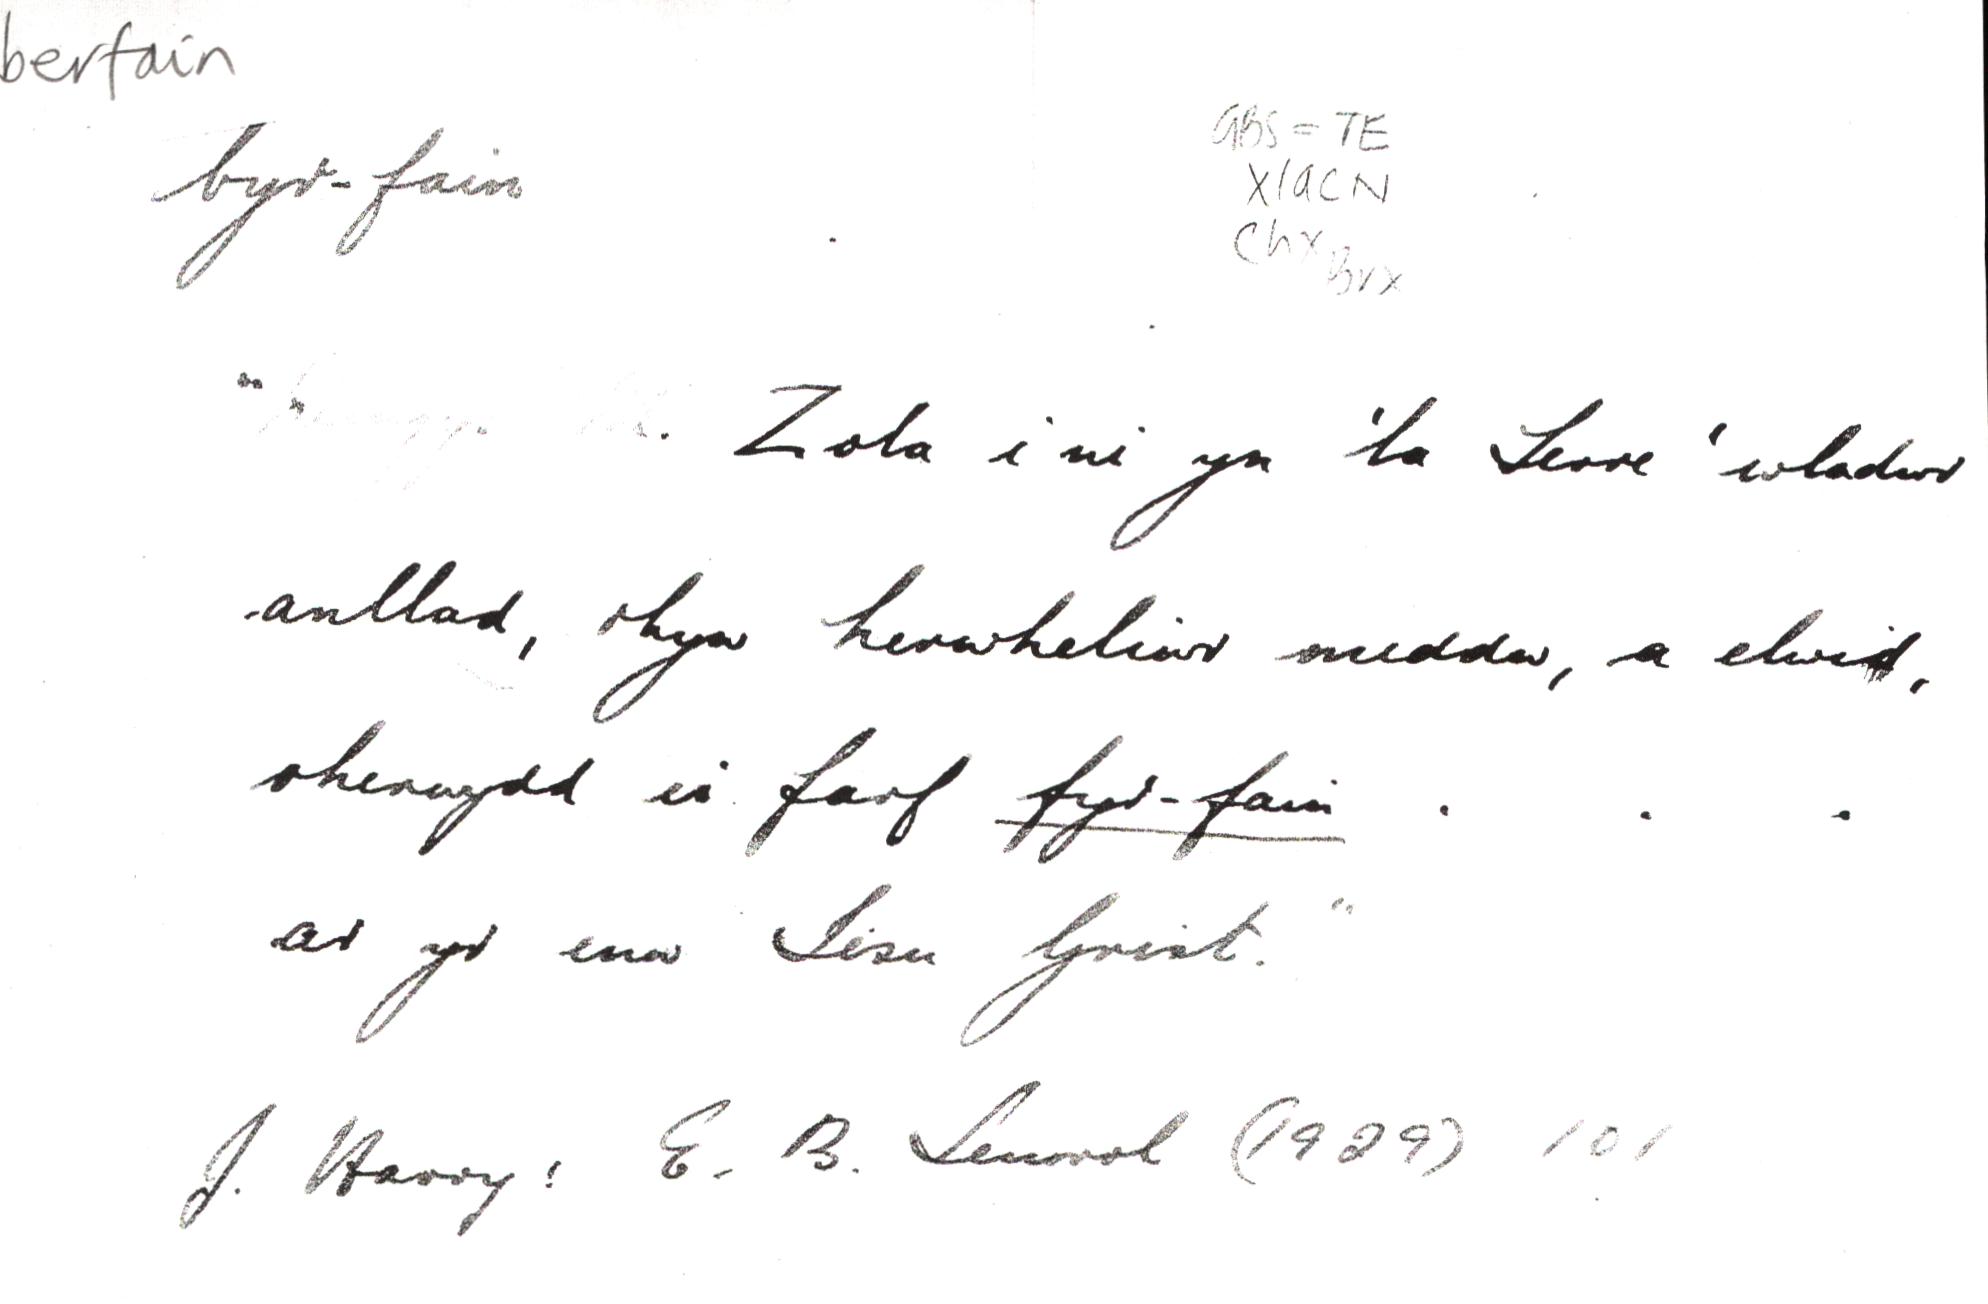 berfain
byr-fain
GBS = TE
X/aCN
Chx
Brx
" Zola i ni yn 'la Terre' wladwr
anllad, rhyw herwheliwr meddw, a elwid,
oherwydd ei farf fyr-fain . . .
ar yr enw Iesu Grist."
J. Harry: E. B. (1929) 101